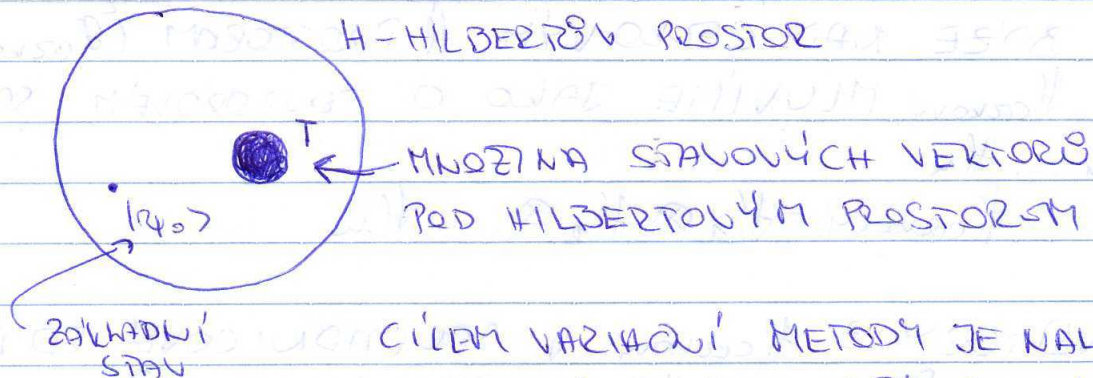 H-HILBERTŮV PROSTOR
T
MNOŽINA STAVOVÝCH VEKTORŮ
POD HILBERTOVÝM PROSTOREM
|ψ₀>
ZÁKLADNÍ
STAV
CÍLEM VARIAČNÍ METODY JE